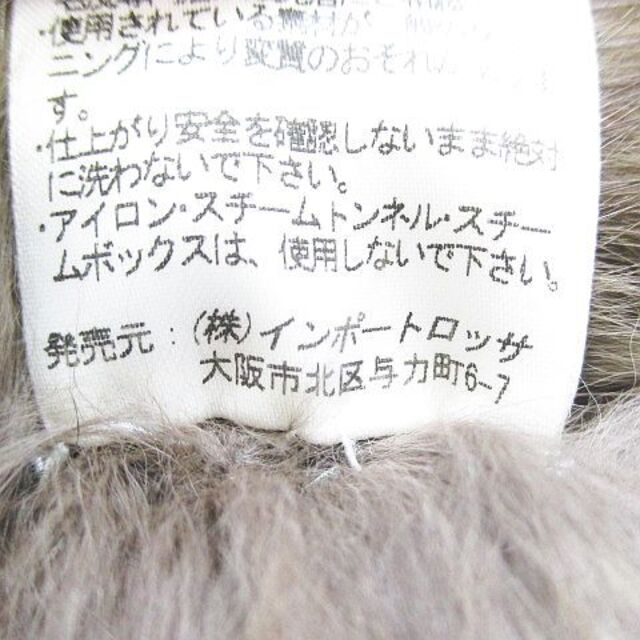 ・使用されている素材が
ニングにより変質のおそれ
す。
・仕上がり安全を確認しないまま絶対
に洗わないで下さい。
・アイロン・スチームトンネル・スチー
ムボックスは、使用しないで下さい。
発売元:(株)インポートロッサ
大阪市北区与力町6-7